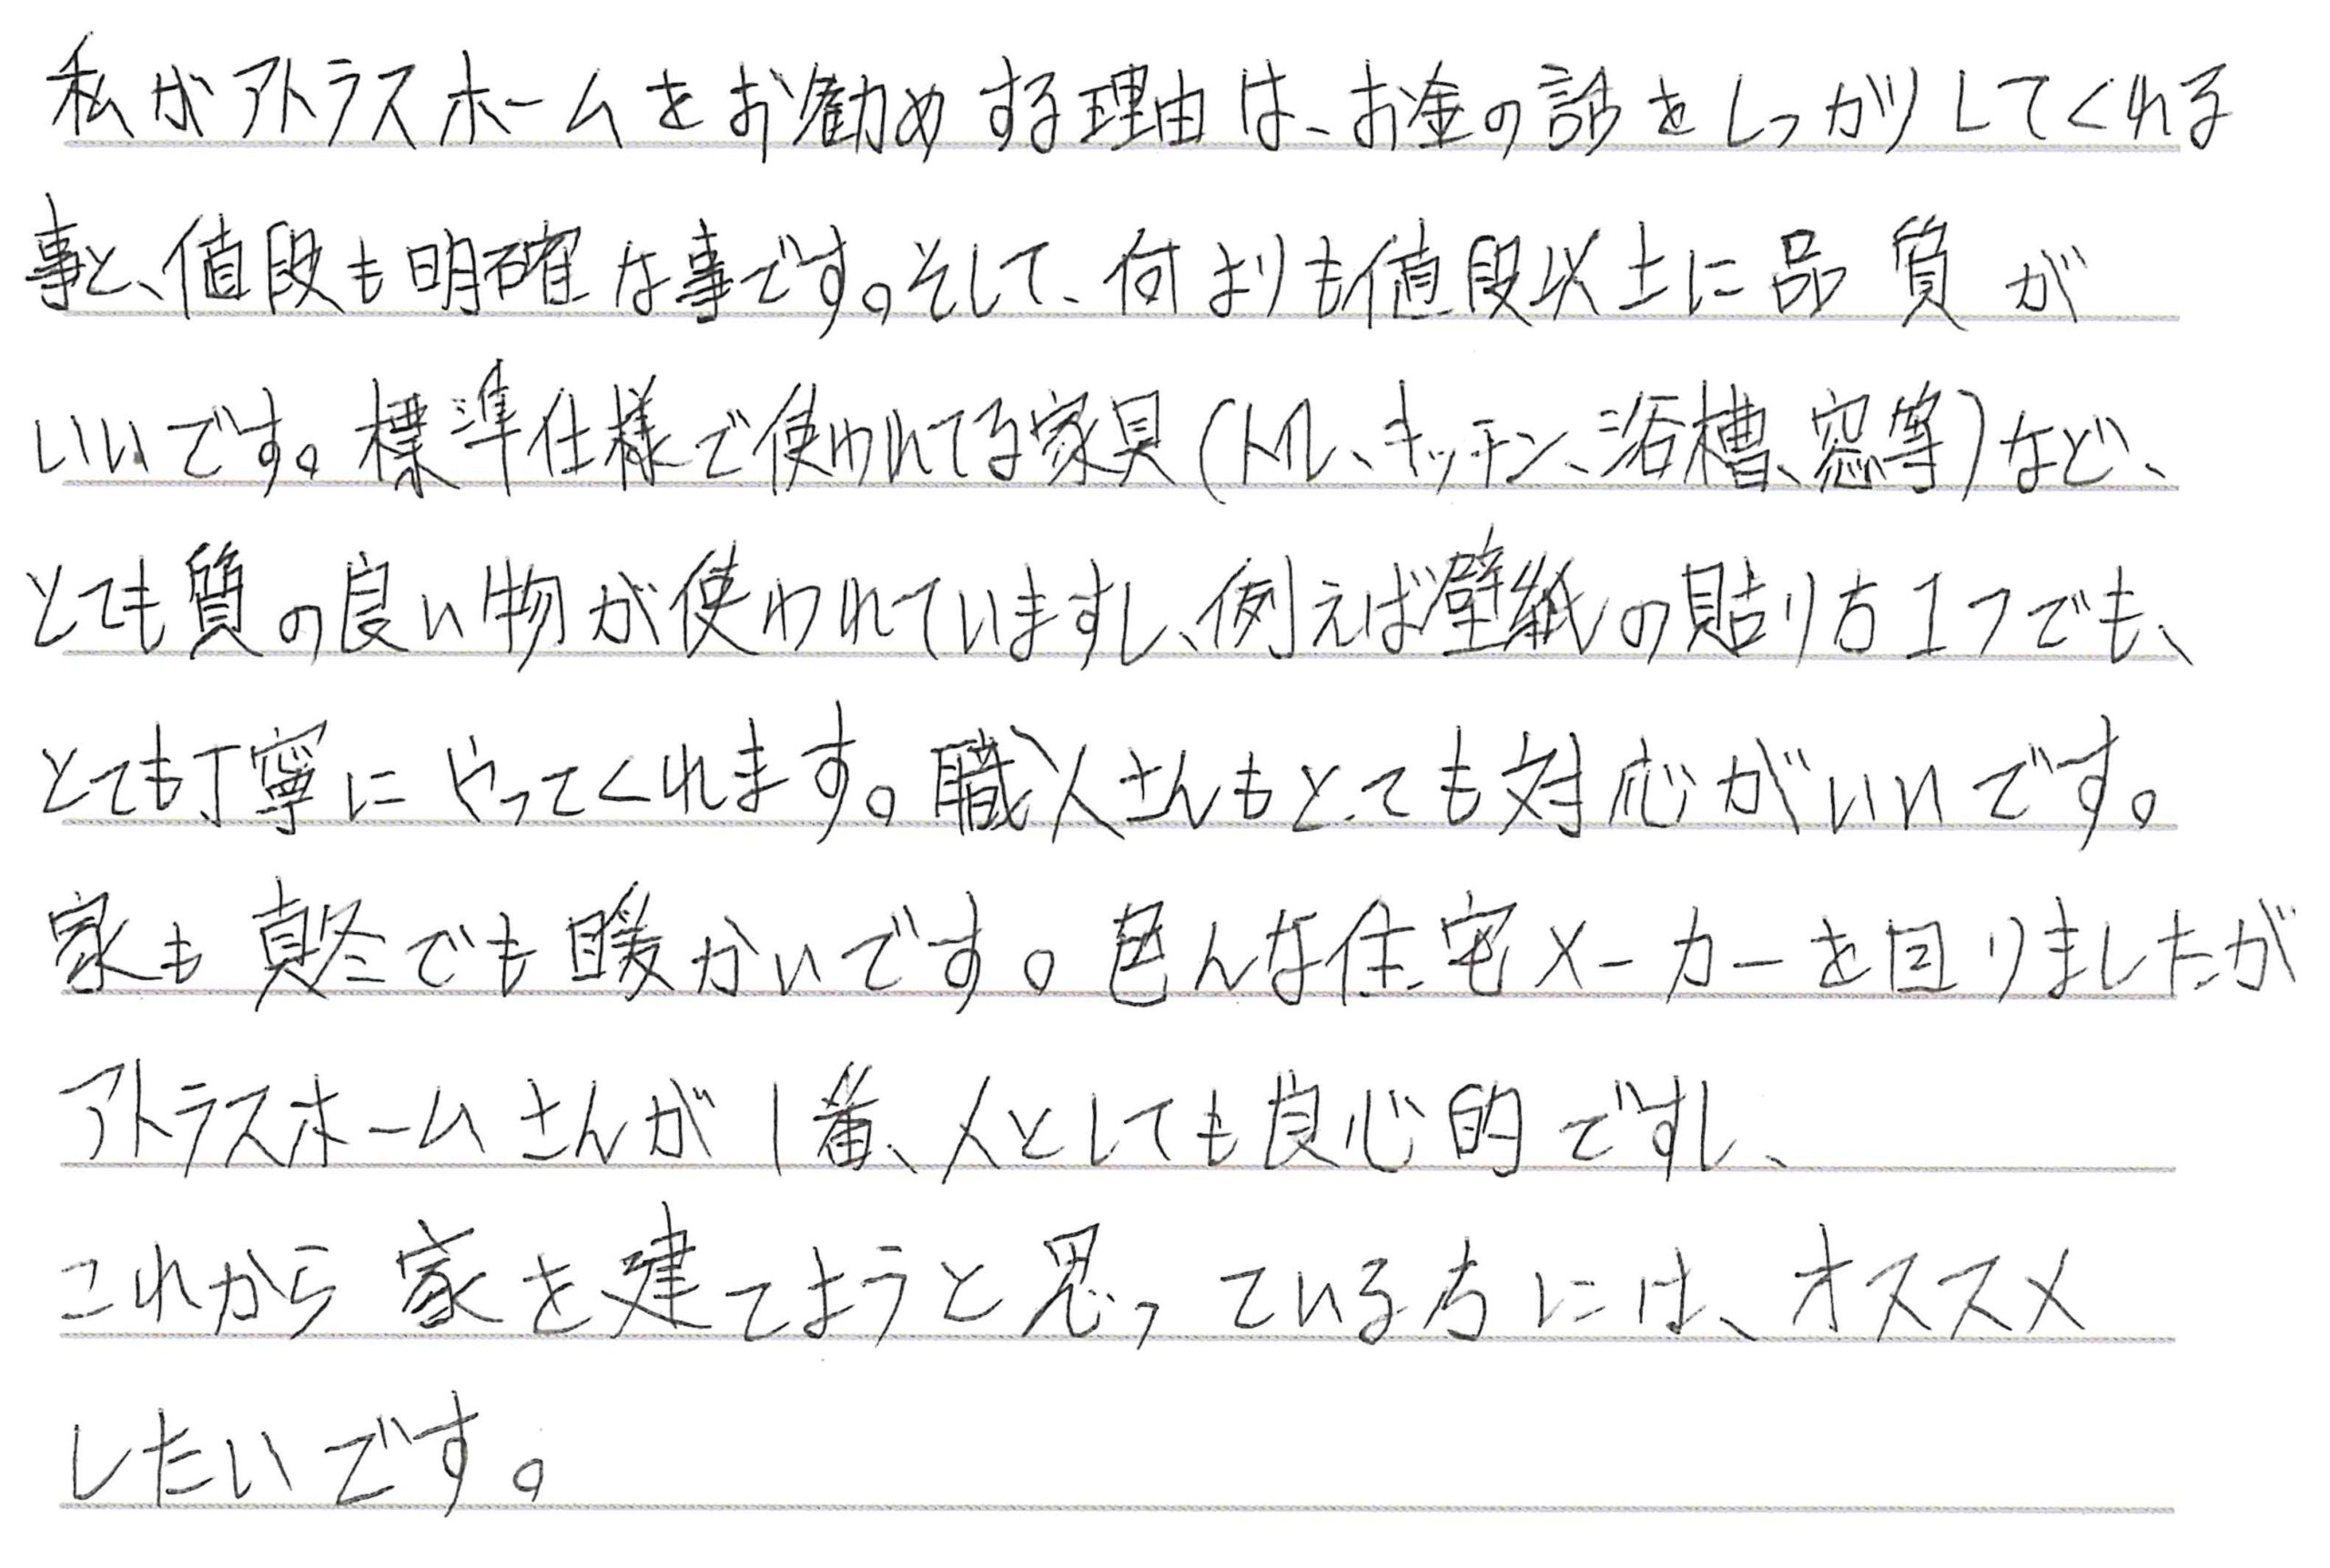 私がアトラスホームをお勧めする理由は、お金の話をしっかりしてくれる
事と、値段も明確な事です。そして、何よりも値段以上に品質が
いいです。標準仕様で使われてる家具(トイレ、キッチン、浴槽、窓等)など、
とても質の良い物が使われていますし、例えば壁紙の貼り方1つでも、
とても丁寧にやってくれます。職人さんもとても対応がいいです。
家も真冬でも暖かいです。色んな住宅メーカーを回りましたが
アトラスホームさんが1番、人としても良心的ですし、
これから家を建てようと思っている方には、オススメ
したいです。